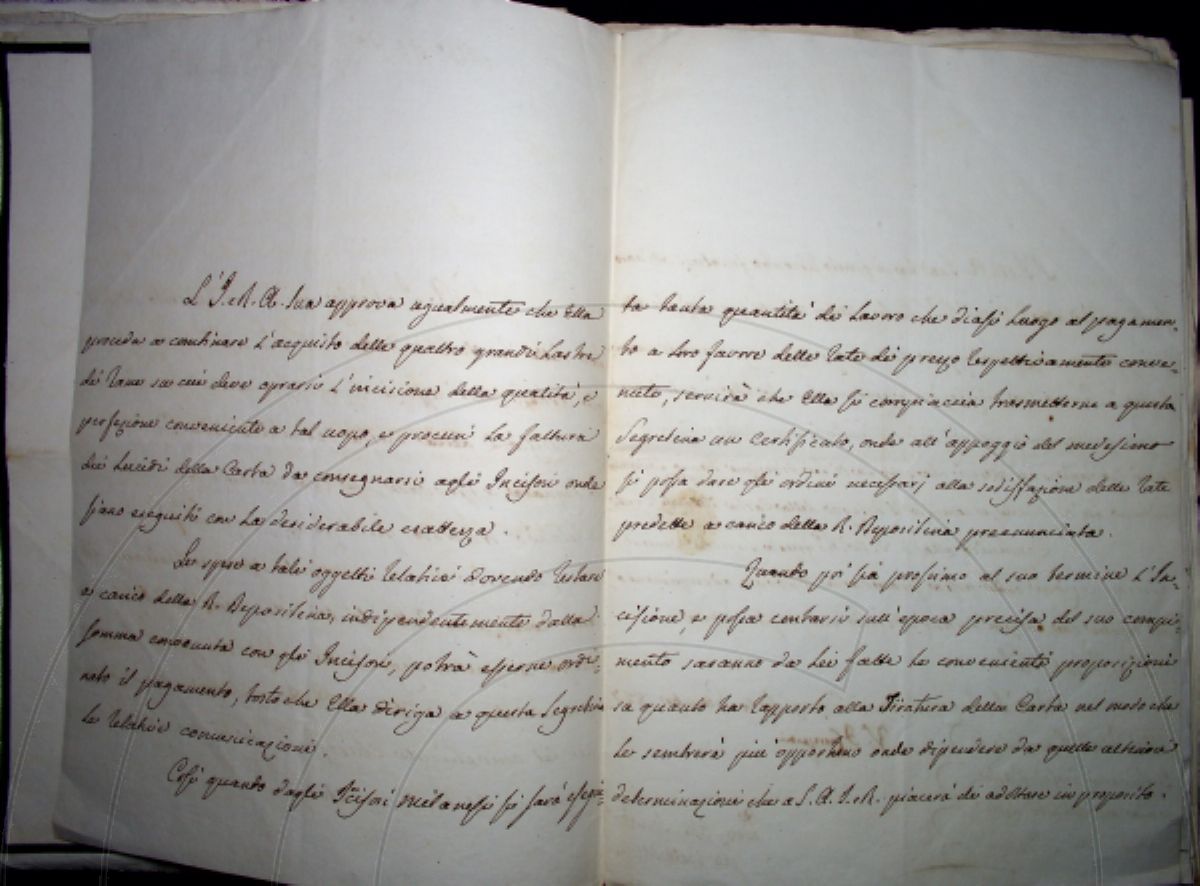 L'I. e R. A. Sua approva ugualmente che Ella
proceda a combinare l'acquisto delle quattro grandi Lastre
di Rame su cui deve oprarsi l'incisione della qualità, e
perfezione conveniente a tal uopo, e procuri la fattura
dei Lucidi della Carta da consegnarsi agli Incisori onde
siano eseguiti con la desiderabile esattezza.
Le spese a tali oggetti relative dovendo restare
a carico della R. Depositeria, indipendentemente dalla
somma convenuta con gli Incisori, potrà esserne ordi-
nato il pagamento, tosto che Ella diriga a questa Segreteria
le relative comunicazioni.
Così quando dagli Incisori milanesi si sarà esegui-
ta tanta quantità di Lavoro che diasi luogo al pagamen-
to a loro favore delle rate di prezzo respettivamente conve-
nuto, servirà che Ella si compiaccia trasmetterne a questa
Segreteria un Certificato, onde all'appoggio del medesimo
si possa dare gli ordini necessarj alla sodisfazione delle rate
predette a carico della R. Depositeria preenunciata.
Quando poi sia prossimo al suo termine l'In-
cisione, e possa contarsi sull'epoca precisa del suo compi-
mento saranno da Lei fatte le convenienti proposizioni
su quanto ha rapporto alla Tiratura della Carta nel modo che
Le sembrerà più opportuno onde dipendere da quelle ulteriori
determinazioni che a S. A. I. e R. piacerà di adottare in proposito.